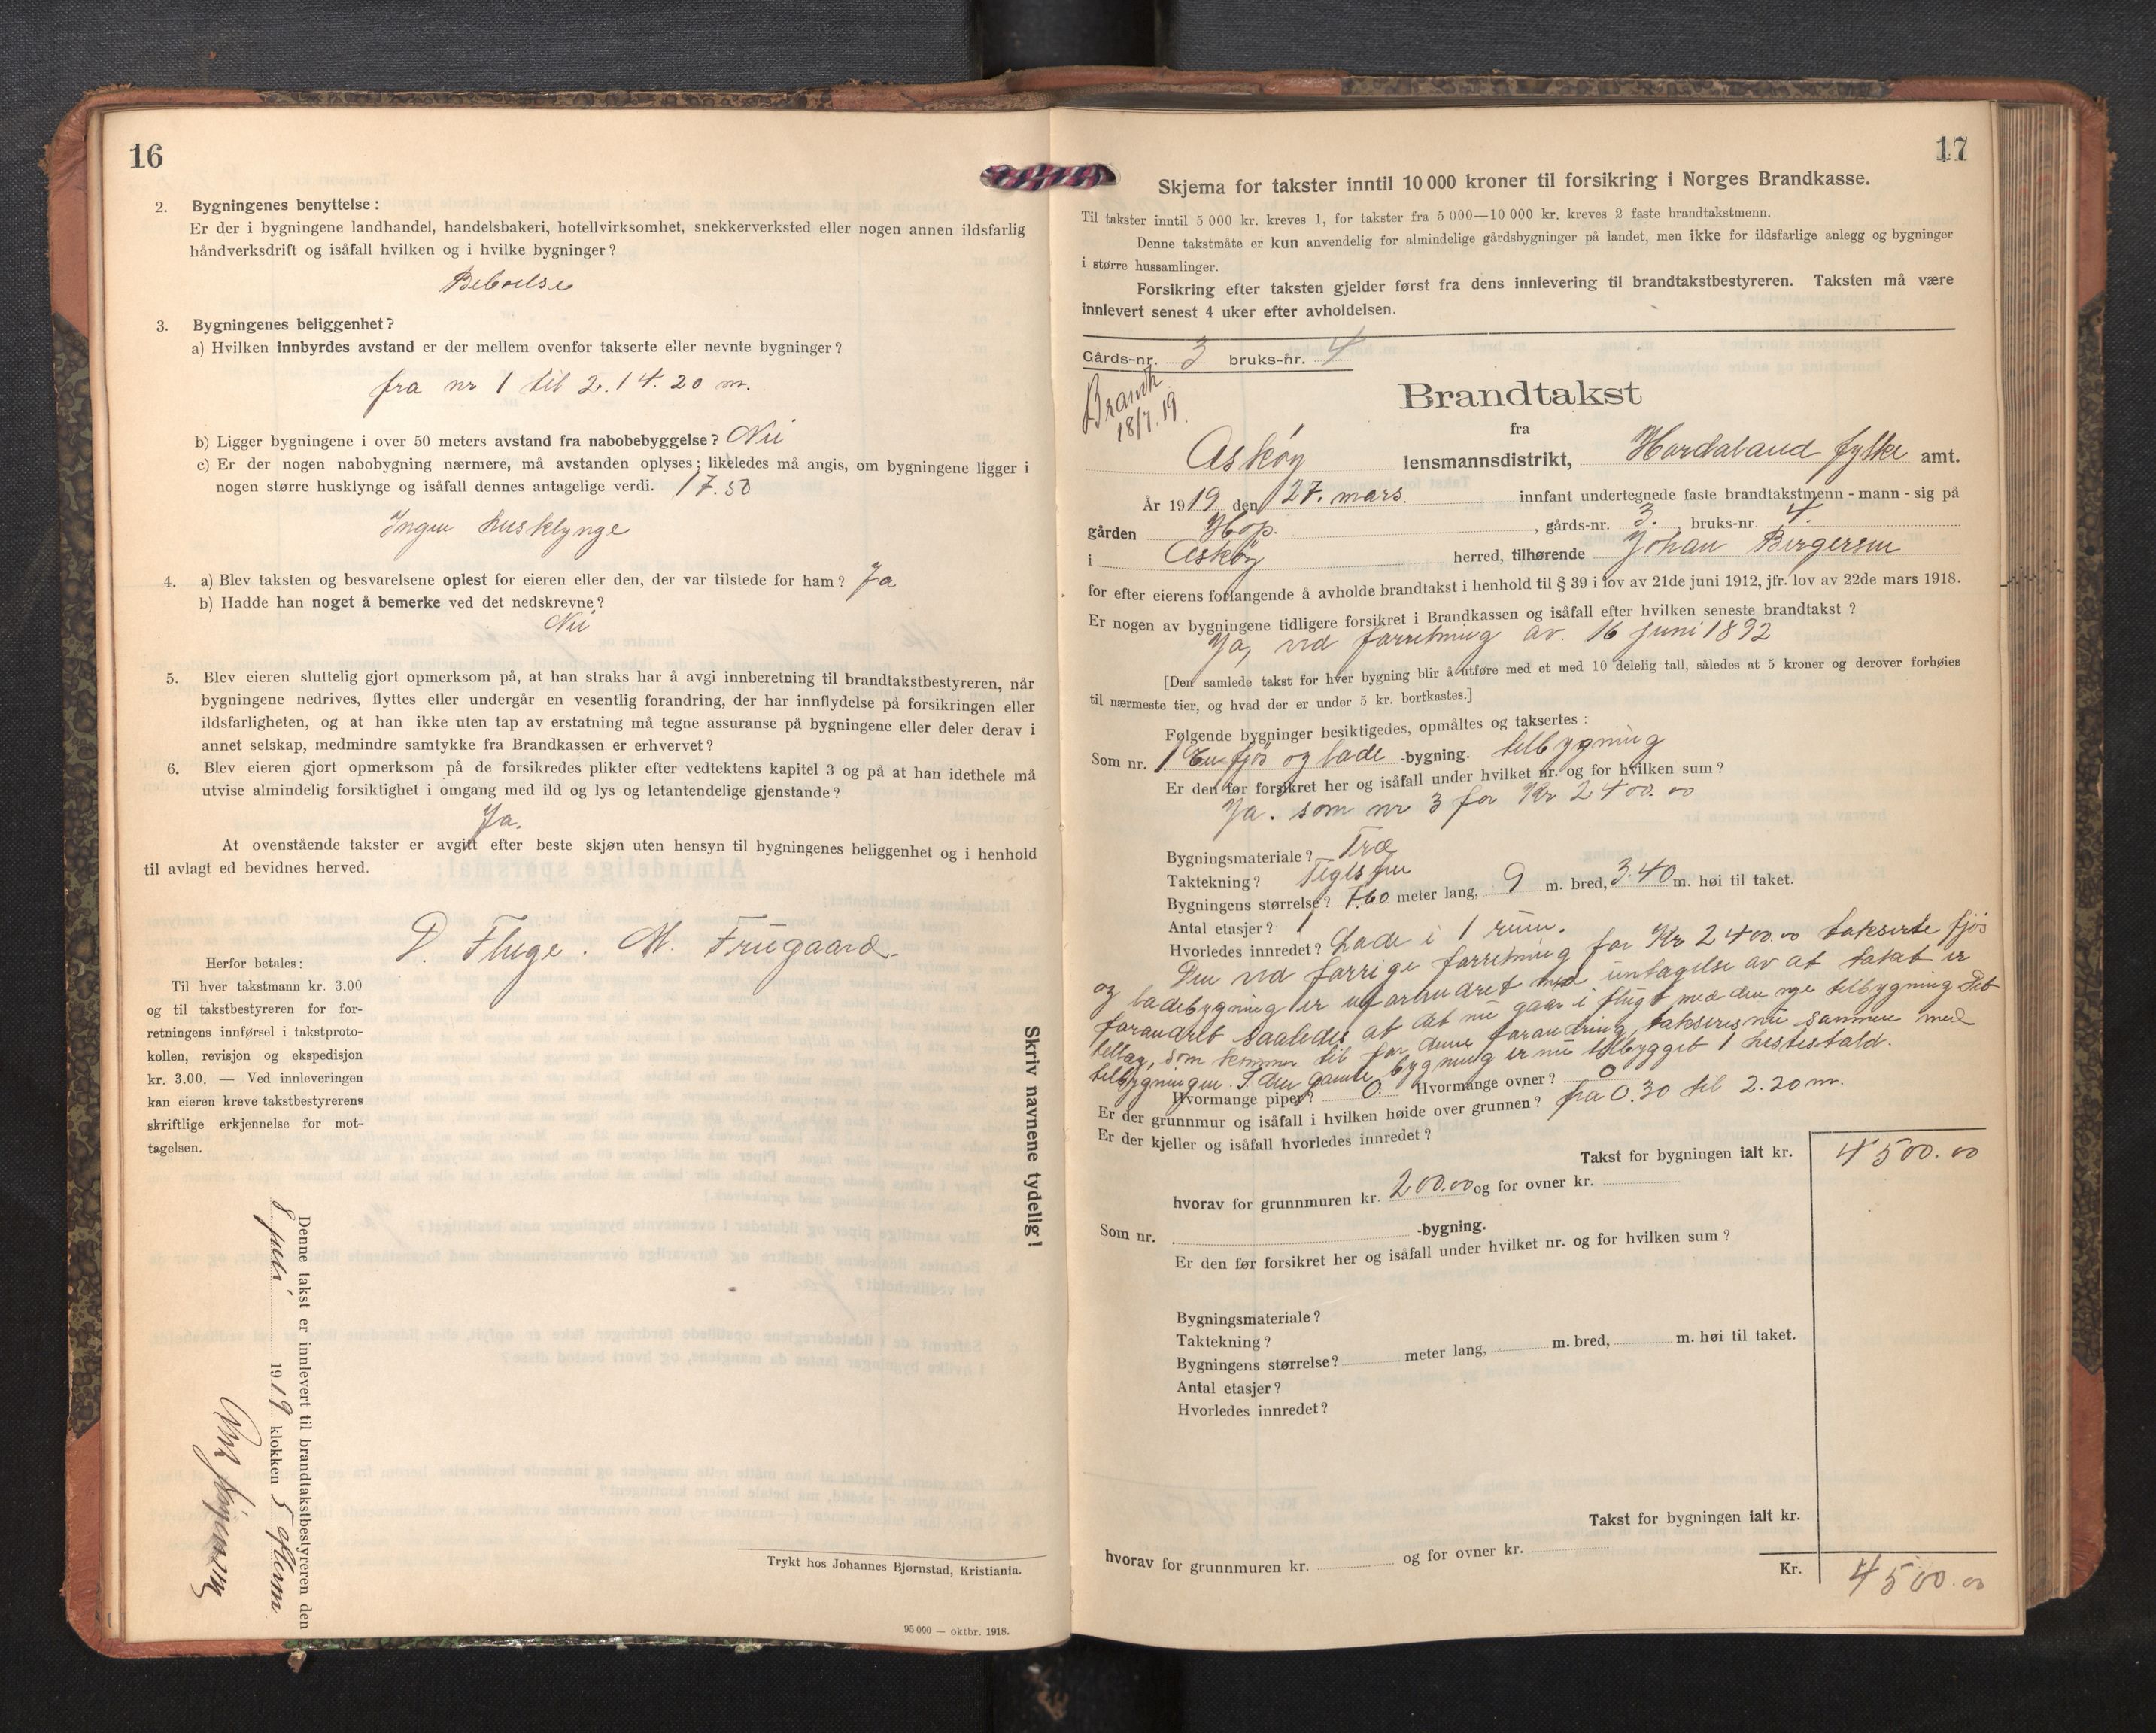 16
2. Bygningenes benyttelse:
Er der i bygningene landhandel, handelsbakeri, hotellvirksomhet, snekkerverksted eller nogen annen ildsfarlig
håndverksdrift og isåfall hvilken og i hvilke bygninger?
Beboelse
3. Bygningenes beliggenhet?
a) Hvilken innbyrdes avstand er der mellem ovenfor takserte eller nevnte bygninger?
fra nr 1 til 2. 14.20 m.
b) Ligger bygningene i over 50 meters avstand fra nabobebyggelse? Nei
c) Er der nogen nabobygning nærmere, må avstanden oplyses; likeledes må angis, om bygningene ligger i
nogen større husklynge og isåfall dennes antagelige verdi. 17.50
Ingen husklynge
4. a) Blev taksten og besvarelsene oplest for eieren eller den, der var tilstede for ham? Ja
b) Hadde han noget å bemerke ved det nedskrevne?
Nei
5. Blev eieren sluttelig gjort opmerksom på, at han straks har å avgi innberetning til brandtakstbestyreren, når
bygningene nedrives, flyttes eller undergår en vesentlig forandring, der har innflydelse på forsikringen eller
ildsfarligheten, og at han ikke uten tap av erstatning må tegne assuranse på bygningene eller deler derav i
annet selskap, medmindre samtykke fra Brandkassen er erhvervet?
6. Blev eieren gjort opmerksom på de forsikredes plikter efter vedtektens kapitel 3 og på at han idethele må
utvise almindelig forsiktighet i omgang med ild og lys og letantendelige gjenstande?
Ja.
At ovenstående takster er avgitt efter beste skjøn uten hensyn til bygningenes beliggenhet og i henhold
til avlagt ed bevidnes herved.
D. Fluge. M. Frugaard.
Herfor betales:
Til hver takstmann kr. 3.00
og til takstbestyreren for for-
retningens innførsel i takstproto-
kollen, revisjon og ekspedisjon
kr. 3.00. — Ved innleveringen
kan eieren kreve takstbestyrerens
skriftlige erkjennelse for mot-
tagelsen.
Skriv navnene tydelig!
Denne takst er innlevert til brandtakstbestyreren den
8 juli 1919 klokken 5 efterm
Trykt hos Johannes Bjørnstad, Kristiania.
95 000 — oktbr. 1918.
17
Skjema for takster inntil 10 000 kroner til forsikring i Norges Brandkasse.
Til takster inntil 5 000 kr. kreves 1, for takster fra 5 000—10 000 kr. kreves 2 faste brandtakstmenn.
Denne takstmåte er kun anvendelig for almindelige gårdsbygninger på landet, men ikke for ildsfarlige anlegg og bygninger
i større hussamlinger.
Forsikring efter taksten gjelder først fra dens innlevering til brandtakstbestyreren. Taksten må være
innlevert senest 4 uker efter avholdelsen.
Gårds-nr. 3 bruks-nr. 4
18/7.19
Brandtakst
fra
Askøy lensmannsdistrikt, Hordaland fylke amt.
År 1919 den 27. mars. innfant undertegnede faste brandtakstmenn - mann - sig på
gården Hop. , gårds-nr. 3. , bruks-nr. 4.
i Askøy herred, tilhørende Johan Birgersen
for efter eierens forlangende å avholde brandtakst i henhold til § 39 i lov av 21de juni 1912, jfr. lov av 22de mars 1918.
Er nogen av bygningene tidligere forsikret i Brandkassen og isåfall efter hvilken seneste brandtakst?
Ja, ved forretning av. 16 juni 1892
[Den samlede takst for hver bygning blir å utføre med et med 10 delelig tall, således at 5 kroner og derover forhøies
til nærmeste tier, og hvad der er under 5 kr. bortkastes.]
Følgende bygninger besiktigedes, opmåltes og taksertes:
Som nr. 1. En fjøs og lade -bygning. tilbygning
Er den før forsikret her og isåfall under hvilket nr. og for hvilken sum?
Ja. som nr 3 for Kr 2400.00
Bygningsmateriale? Træ
Taktekning? Teglsten
Bygningens størrelse? 7.60 meter lang, 9 m. bred, 3.40 m. høi til taket.
Antal etasjer? 1
Hvorledes innredet? Lade i 1 rum.
Den ved forrige forretning for Kr 2400.00 takserte fjøs
og ladebygning er uforandret med untagelse av at taket er
forandret saaledes at det nu gaar i flugt med den nye tilbygning. Det
tillæg, som kommer til for denne forandring, takseres nu sammen med
tilbygningen. I den gamle bygning er nu tilbygget 1 hestestald.
Hvormange piper? 0. Hvormange ovner? 0
Er der grunnmur og isåfall i hvilken høide over grunnen? fra 0.30 til 2.20 m.
Er der kjeller og isåfall hvorledes innredet?
Takst for bygningen ialt kr. 4500.00
hvorav for grunnmuren kr. 200.00 og for ovner kr.
Som nr. -bygning.
Er den før forsikret her og isåfall under hvilket nr. og for hvilken sum?
Bygningsmateriale?
Taktekning?
Bygningens størrelse? meter lang, m. bred, m. høi til taket.
Antal etasjer?
Hvorledes innredet?
Takst for bygningen ialt kr.
hvorav for grunnmuren kr. og for ovner kr.
Kr. 4500.00